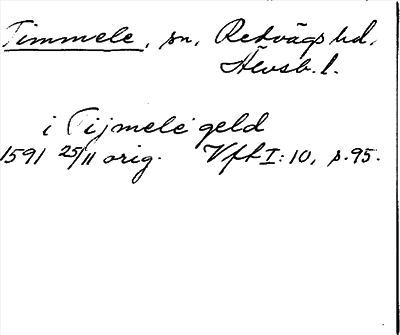 Timmele, sn, Redvägs hd.
Älvsb. l.
i Tijmele geld
1591 25/11 orig. Vft I: 10, s. 95.